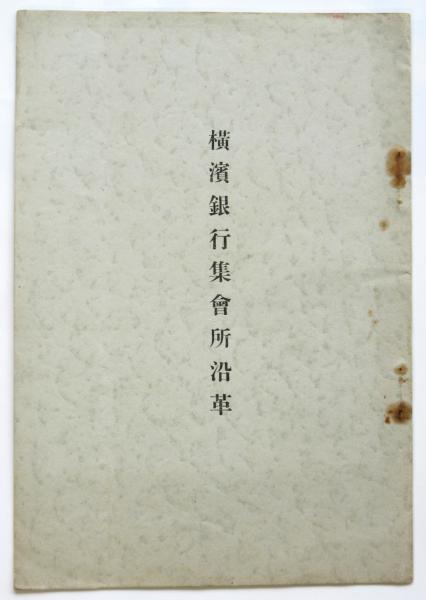 橫濱銀行集會所沿革